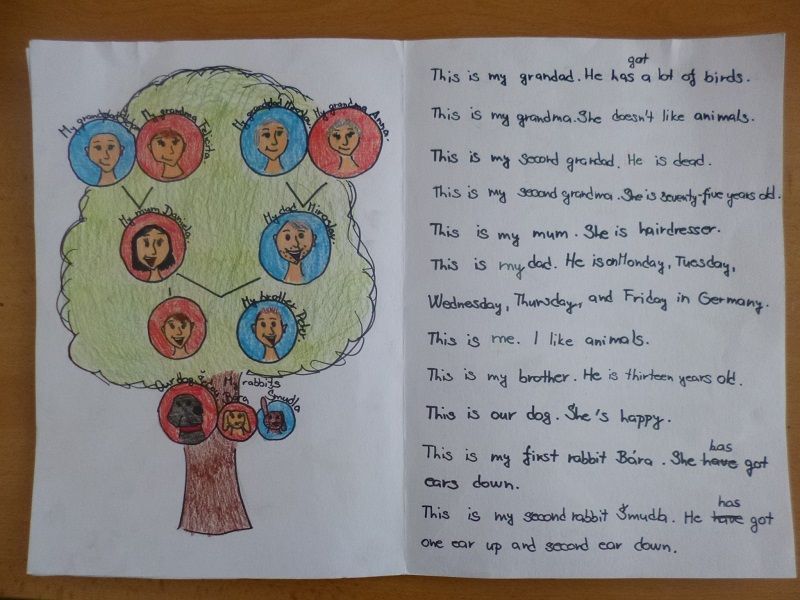 My grandma Felicita.
My granddad
My grandma Anna.
My mum Daniela.
My dad Miroslav.
My brother Peter.
Our dog
My rabbits
Bára
Šmudla
got
This is my grandad. He has a lot of birds.
This is my grandma. She doesn't like animals.
This is my second grandad. He is dead.
This is my second grandma. She is seventy-five years old.
This is my mum. She is hairdresser.
This is my dad. He is on Monday, Tuesday,
Wednesday, Thursday, and Friday in Germany.
This is me. I like animals.
This is my brother. He is thirteen years old.
This is our dog. She's happy.
has
This is my first rabbit Bára. She have got
ears down.
has
This is my second rabbit Šmudla. He have got
one ear up and second ear down.